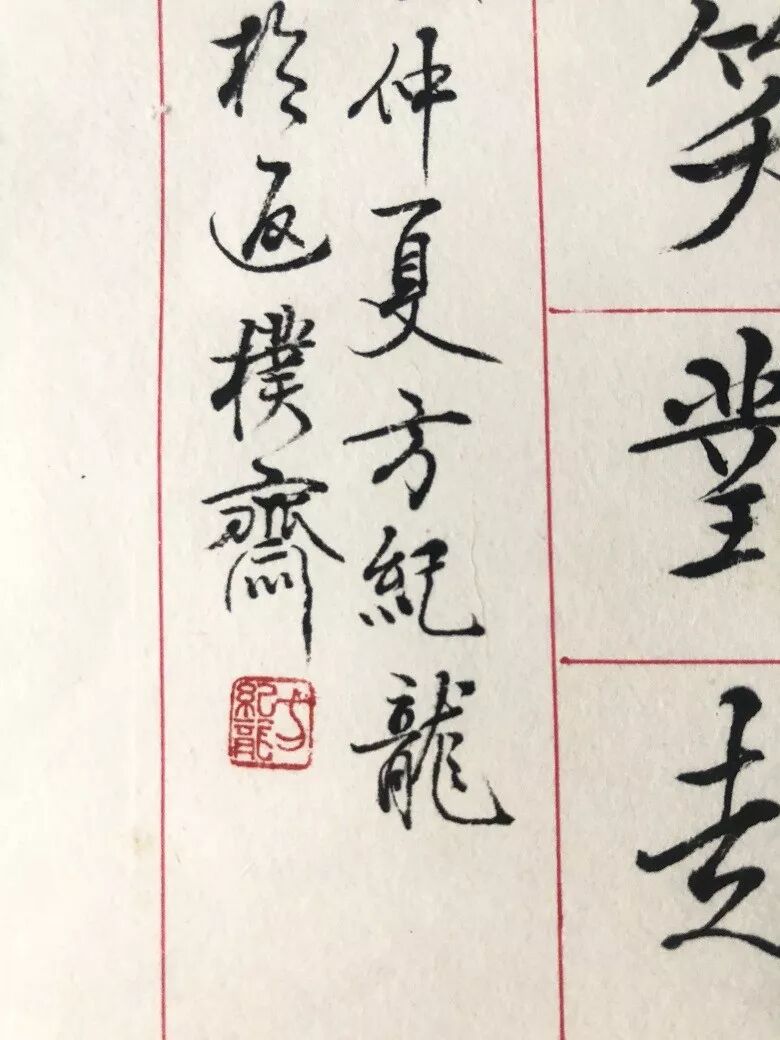 笑
走
仲夏方紀龍
於返樸齋
方紀龍